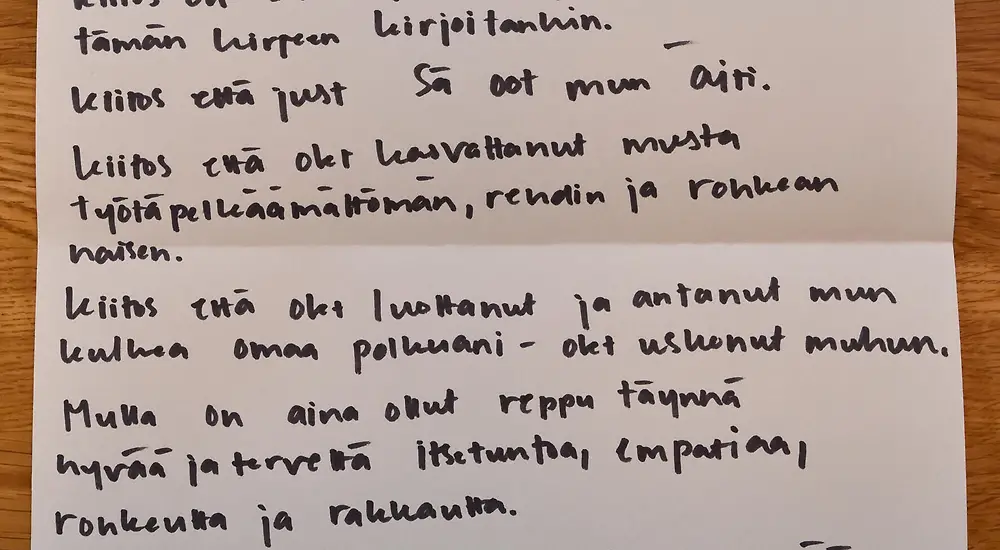 tämän kirjeen kirjoitankin.
Kiitos että just Sä oot mun äiti.
Kiitos että oot kasvattanut musta
työtäpelkäämättömän, rendin ja rohkean
naisen.
Kiitos että oot luottanut ja antanut mun
kulkea omaa polkuani - oot uskonut muhun.
Mulla on aina ollut reppu täynnä
hyvää ja tervettä itsetuntoa, empatiaa,
rohkeutta ja rakkautta.